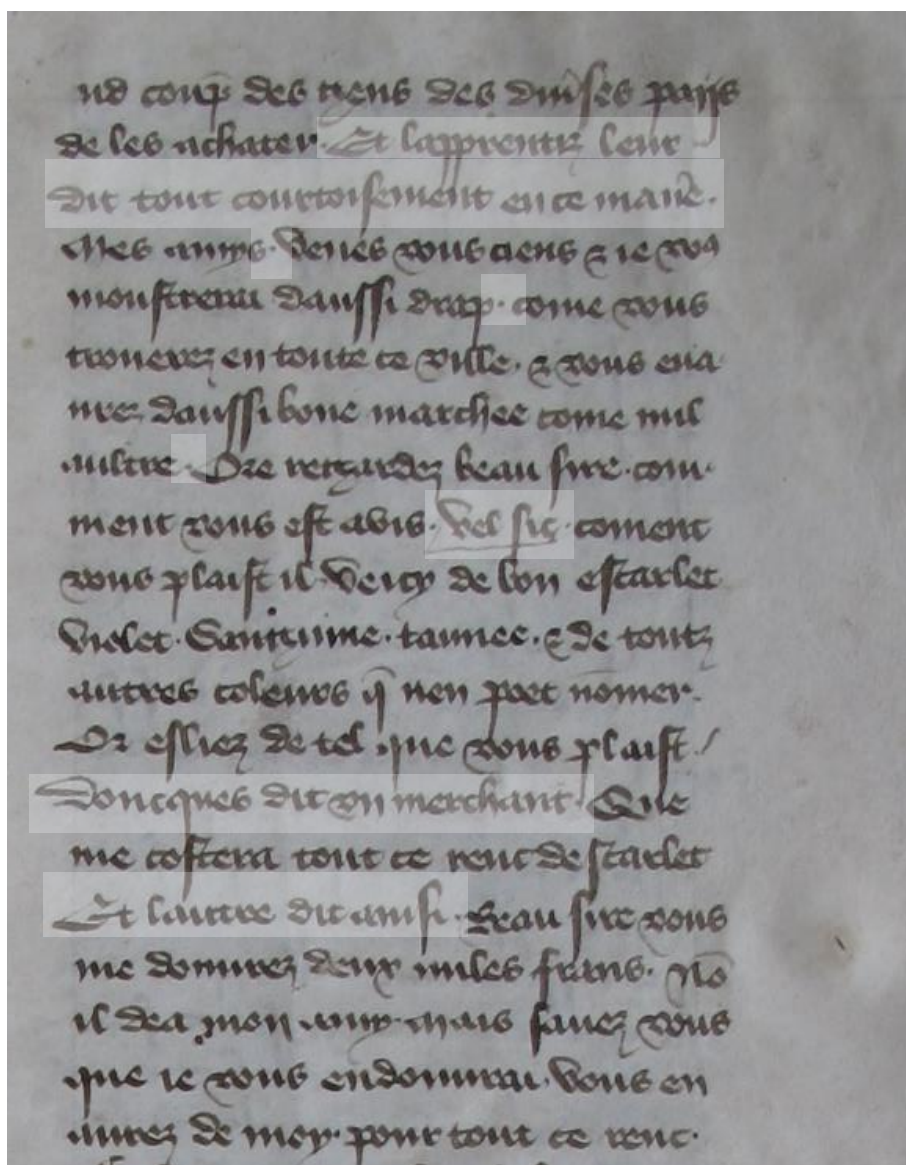 nd coup des gens des div̾ses paijs
de les achater · Et lapprentiz leur
dit tout courtoisement en ce man̾e ·
Mes amys · venes vous ciens & ie voꝰ
monstrerai daussi drap · come vous
trouerez en toute ce ville · & vous en a
urez daussi bone marchee come nul
aultre · Ore regardez beau sire · com-
ment vous est avis · vel sic · coment
vous plaist il · veicy de bon escarlet
violet · Sanguine · tannee · & de toutz
autres coleurs q̄ nen poet nōmer ·
Or eslliez de tel que vous plaist /
Doncques dit vn merchant · Que
me costera tout ce renc descarlet
Et lautre dit ainsi · Beau sire vous
me donnrez deux miles frans · Nō
il dea mon amy · mais sauez vous
que ie vous en donnrai · vous en
aurez de moy · pour tout ce renc ·